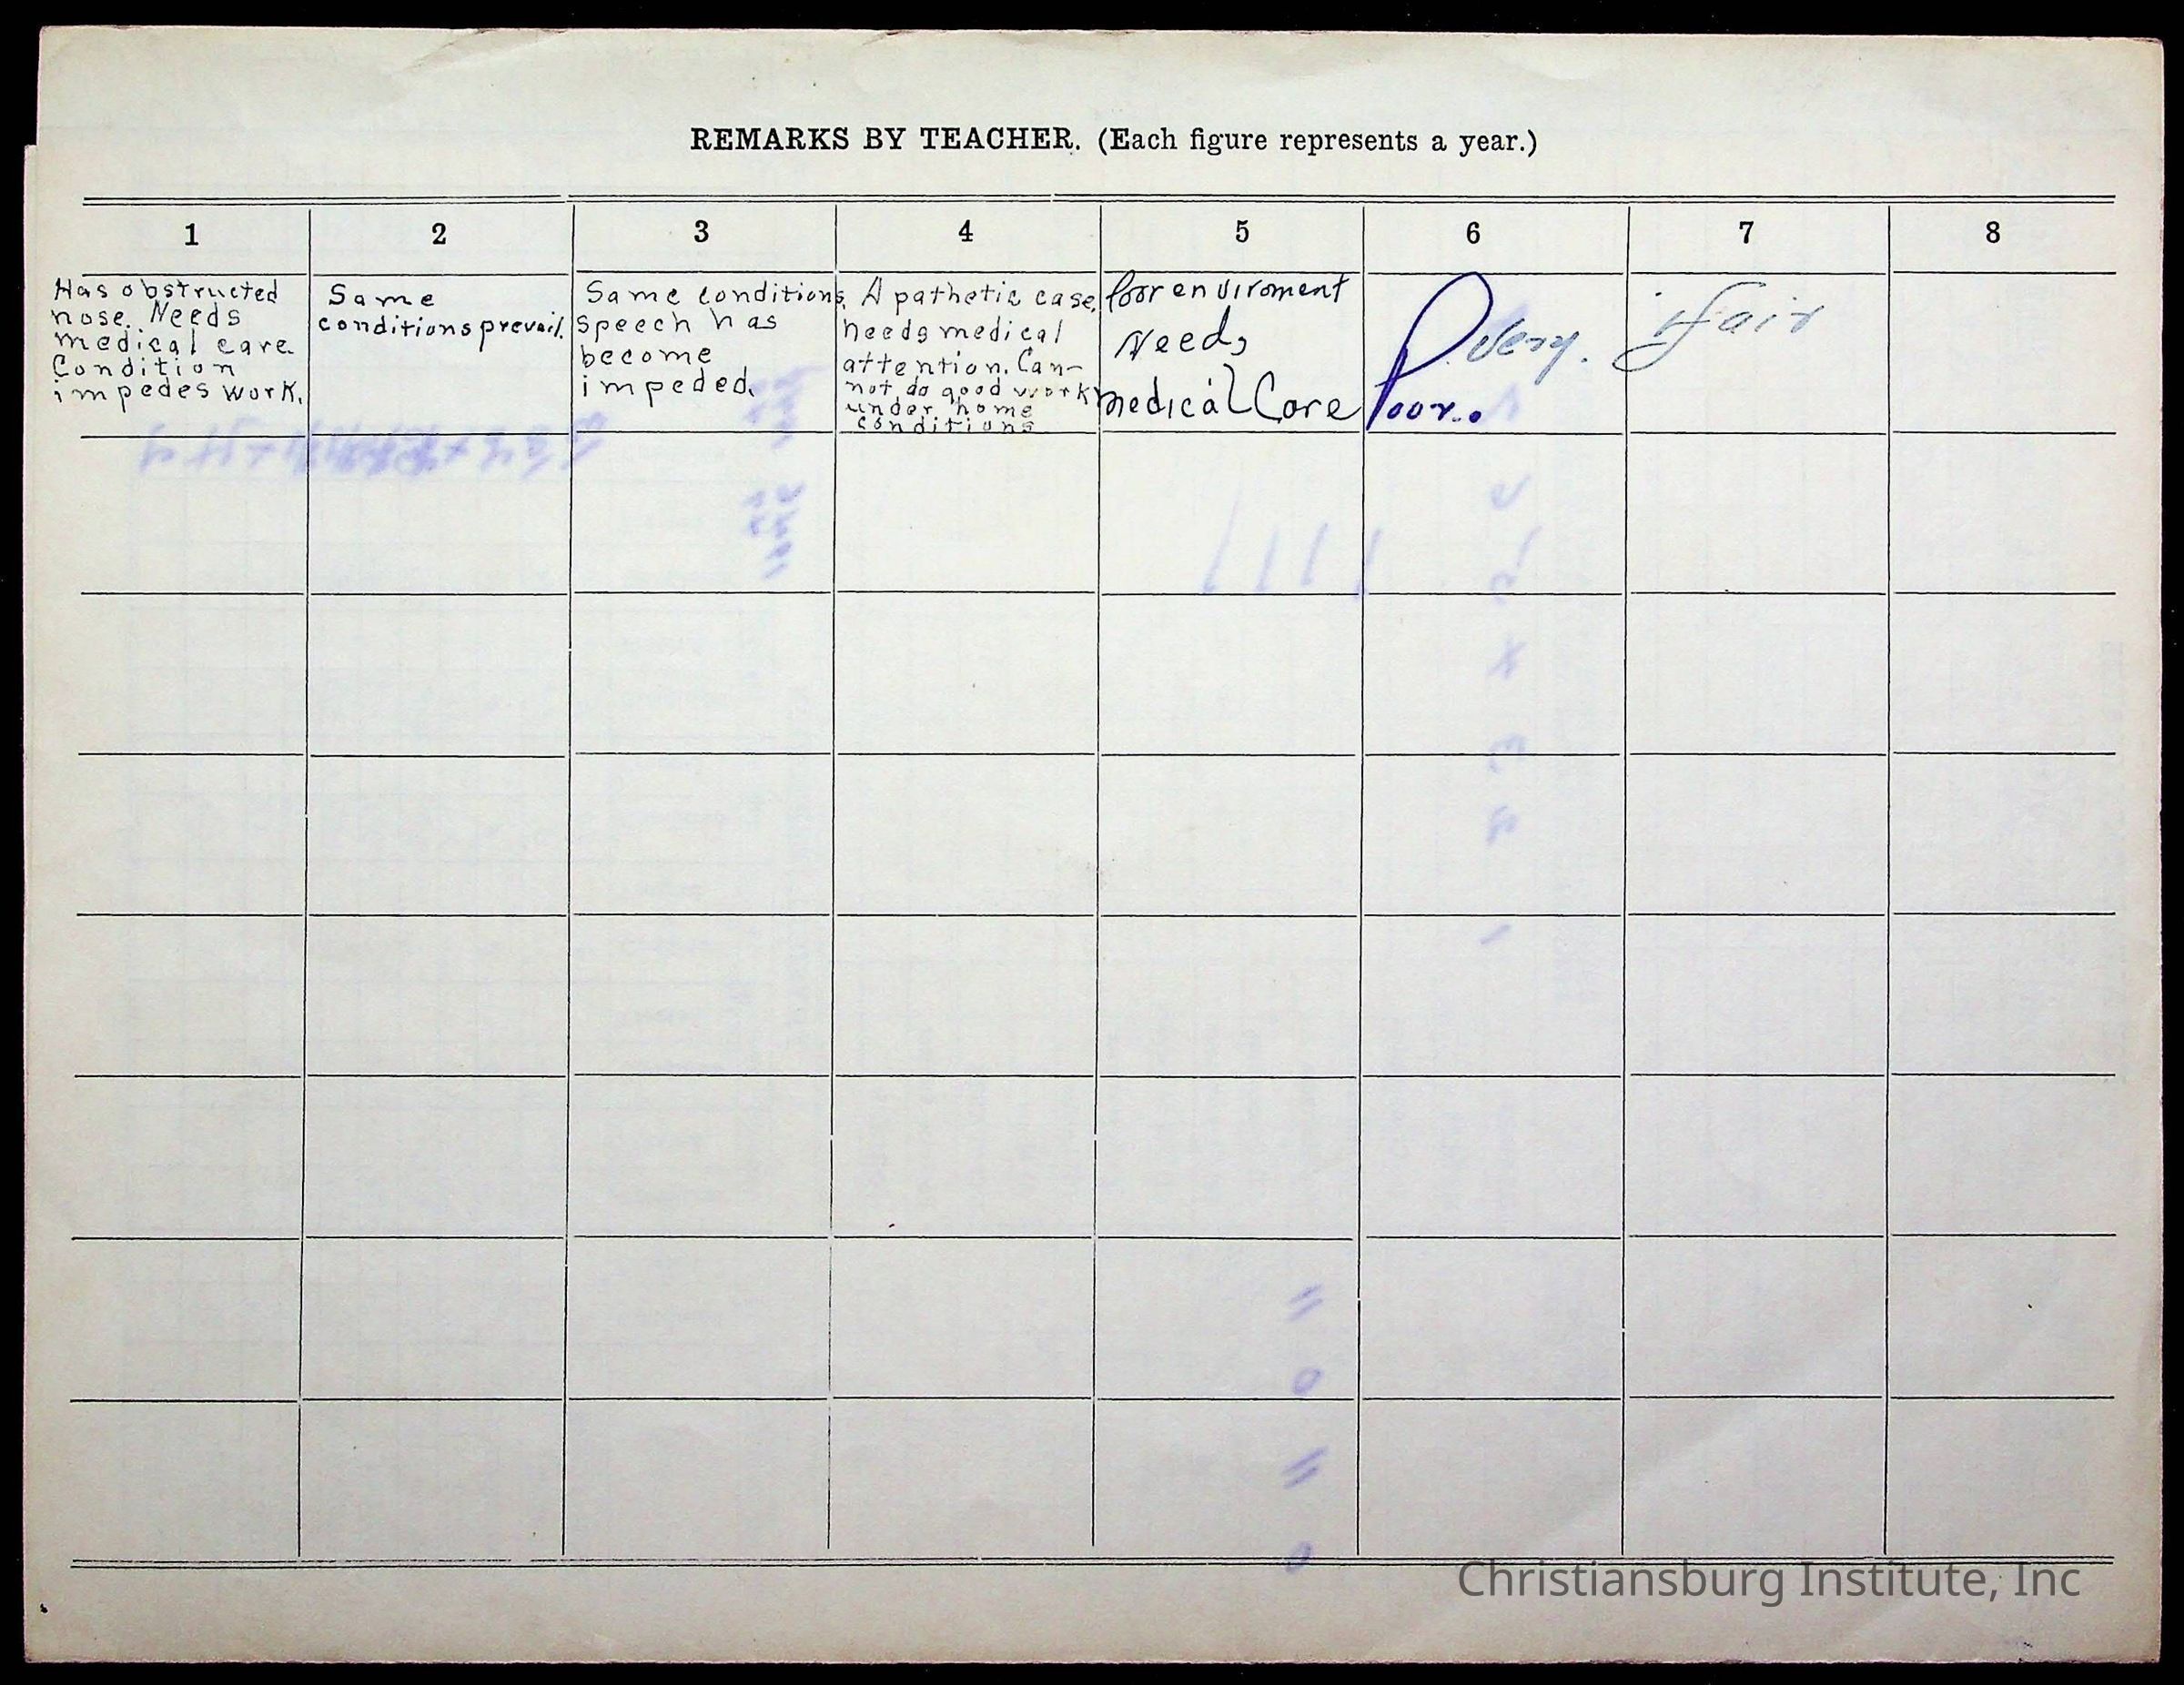 REMARKS BY TEACHER. (Each figure represents a year.)
1 2 3 4 5 6 7 8
Has obstructed
nose. Needs
medical care
Condition
impedes work.
Same
conditions prevail.
Same conditions.
speech has
become
impeded.
A pathetic case.
needs medical
attention. Can-
not do good work
under home
conditions
Poor enviroment
Needs
medical Care
Very.
Poor.
Fair
Christiansburg Institute, Inc